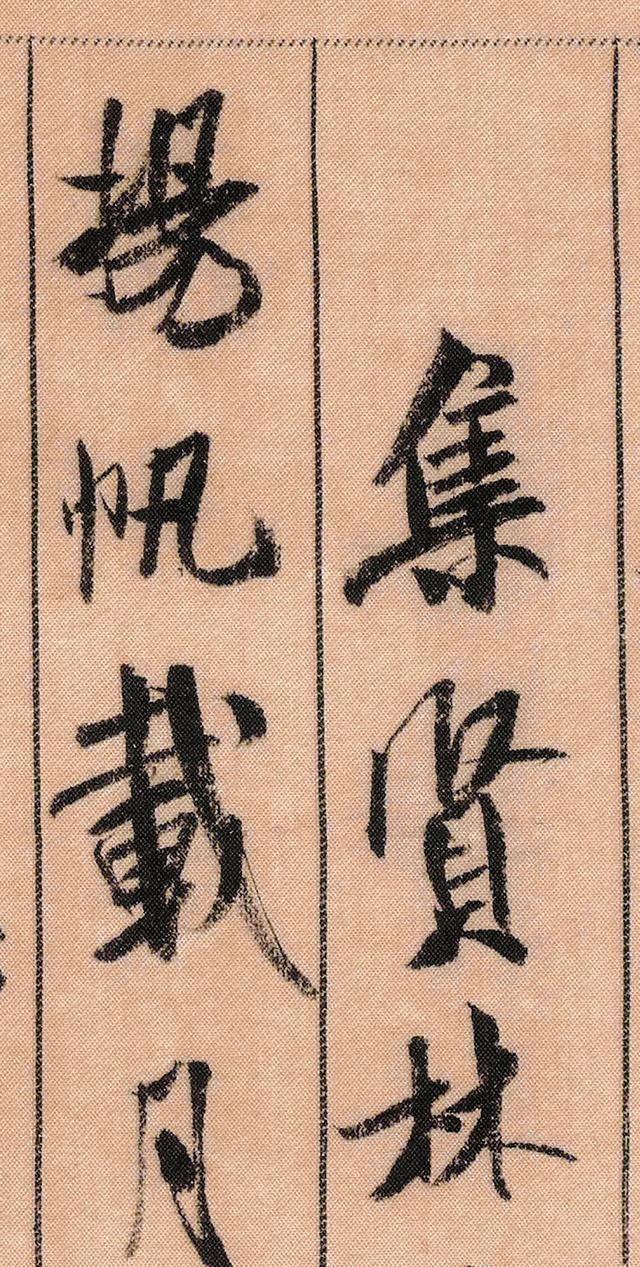 集賢林
揚帆載月